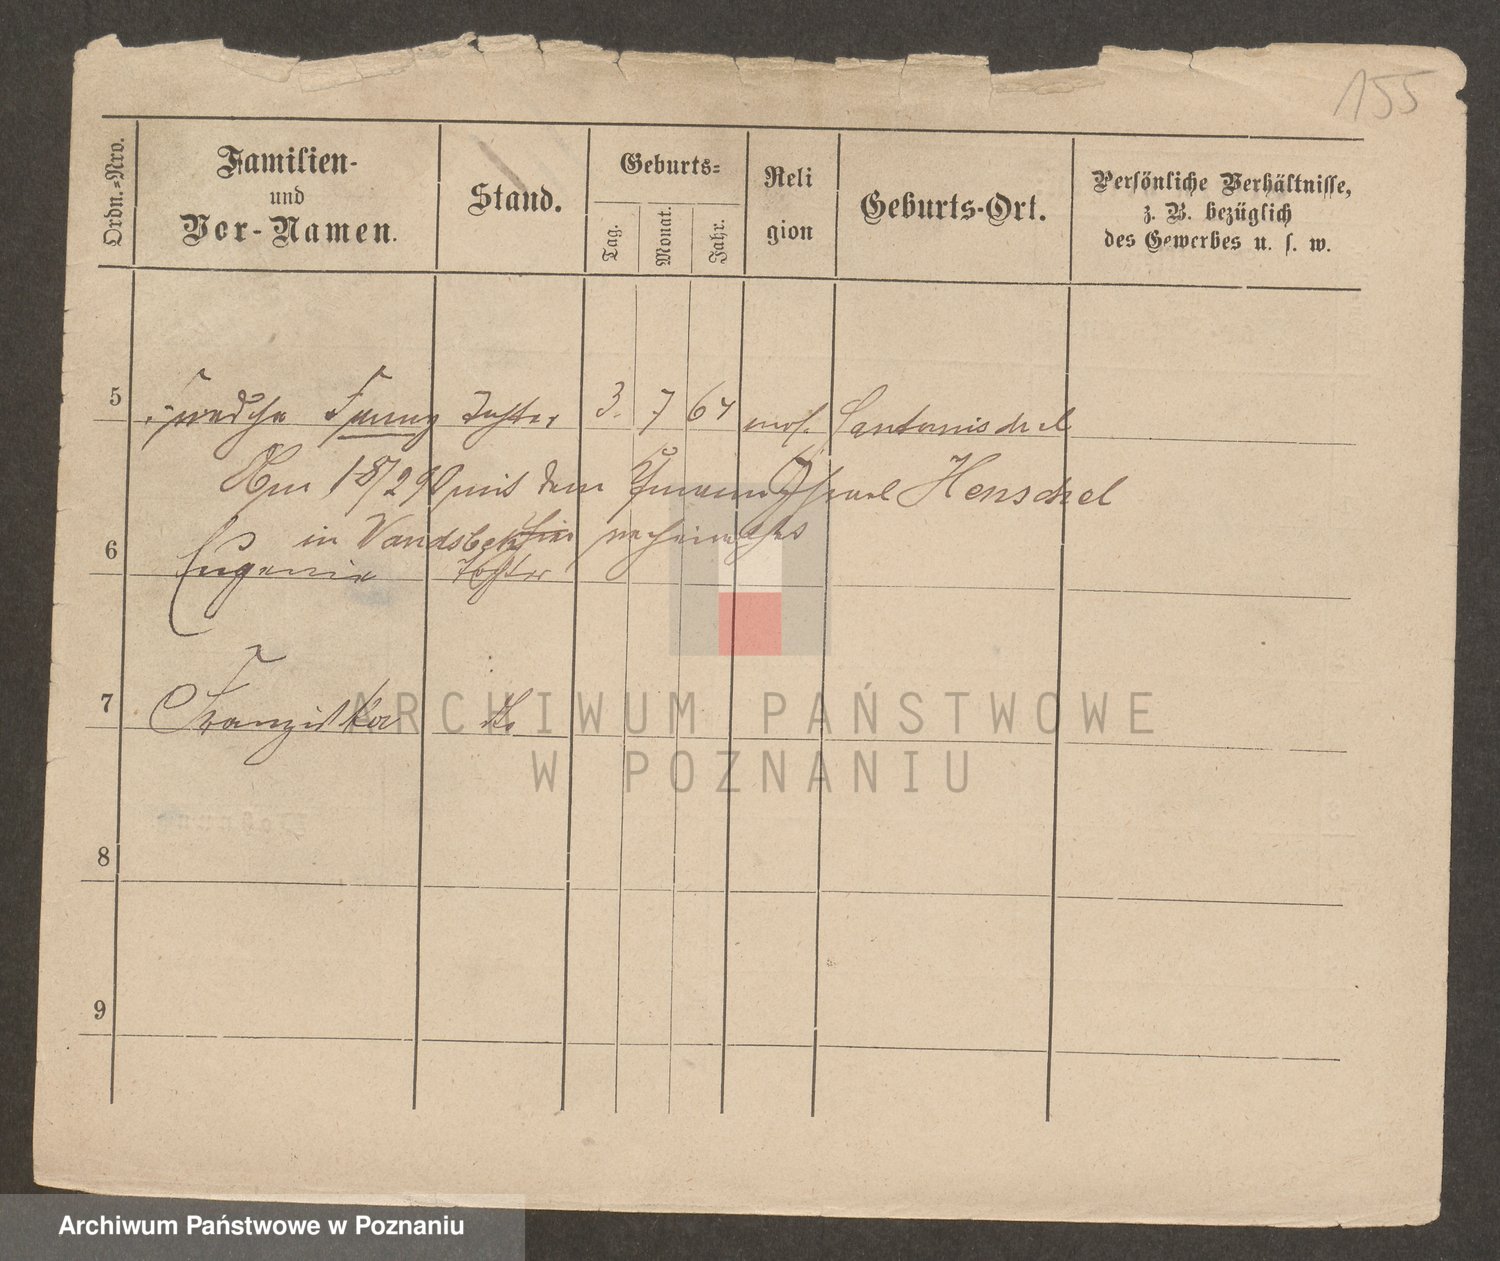 155
Ordn.-Nro.
Familien-
und
Vor-Namen.
Stand.
Geburts-
Tag.
Monat.
Jahr.
Reli
gion
Geburts-Ort.
Persönliche Verhältnisse,
z. B. bezüglich
des Gewerbes u. s. w.
5
Fanny Tochter 3. 7 67 mos. Santomischel
Am 18/2 90 mit dem Henschel
in Wandsbek
6
Eugenie Tochter
7
Franziska do
8
9
ARCHIWUM PAŃSTWOWE
W POZNANIU
Archiwum Państwowe w Poznaniu